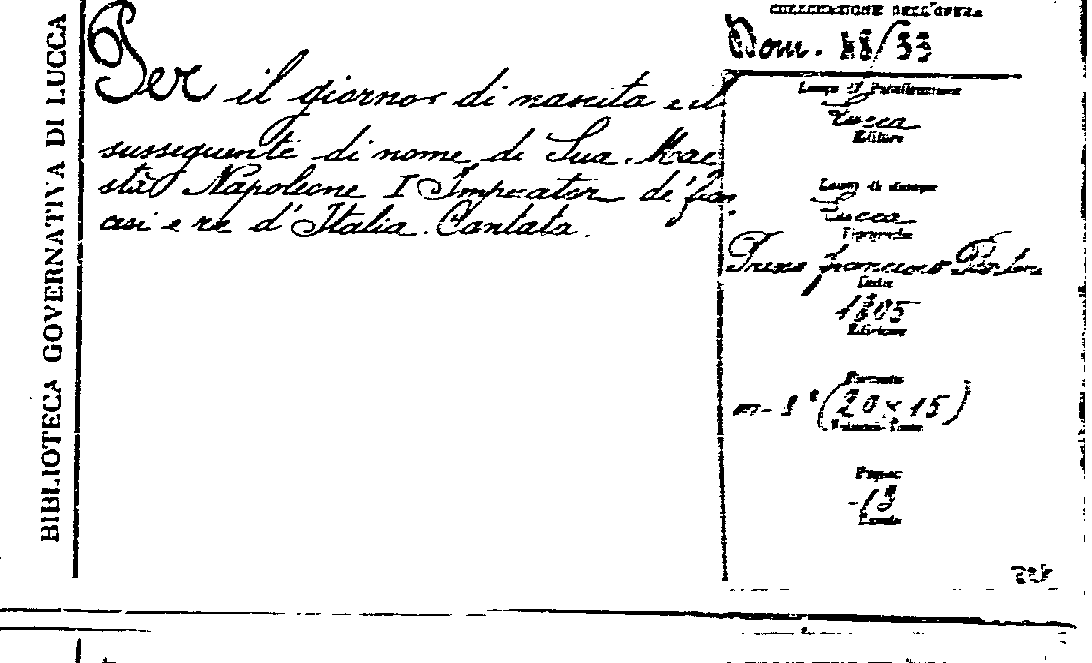 BIBLIOTECA GOVERNATIVA DI LUCCA
Per il giorno di nascita e il
susseguente di nome di Sua Mae
stà Napoleone I Imperator de' fran
cesi e re d'Italia. Cantata.
COLLOCAZIONE DELL'OPERA
Dom.
Luogo di Pubblicazione
Lucca
Editore
Luogo di stampa
Lucca
Tipografo
Presso Francesco
Data
1805
Edizione
Formato
(20 x 15)
Pagine
-13